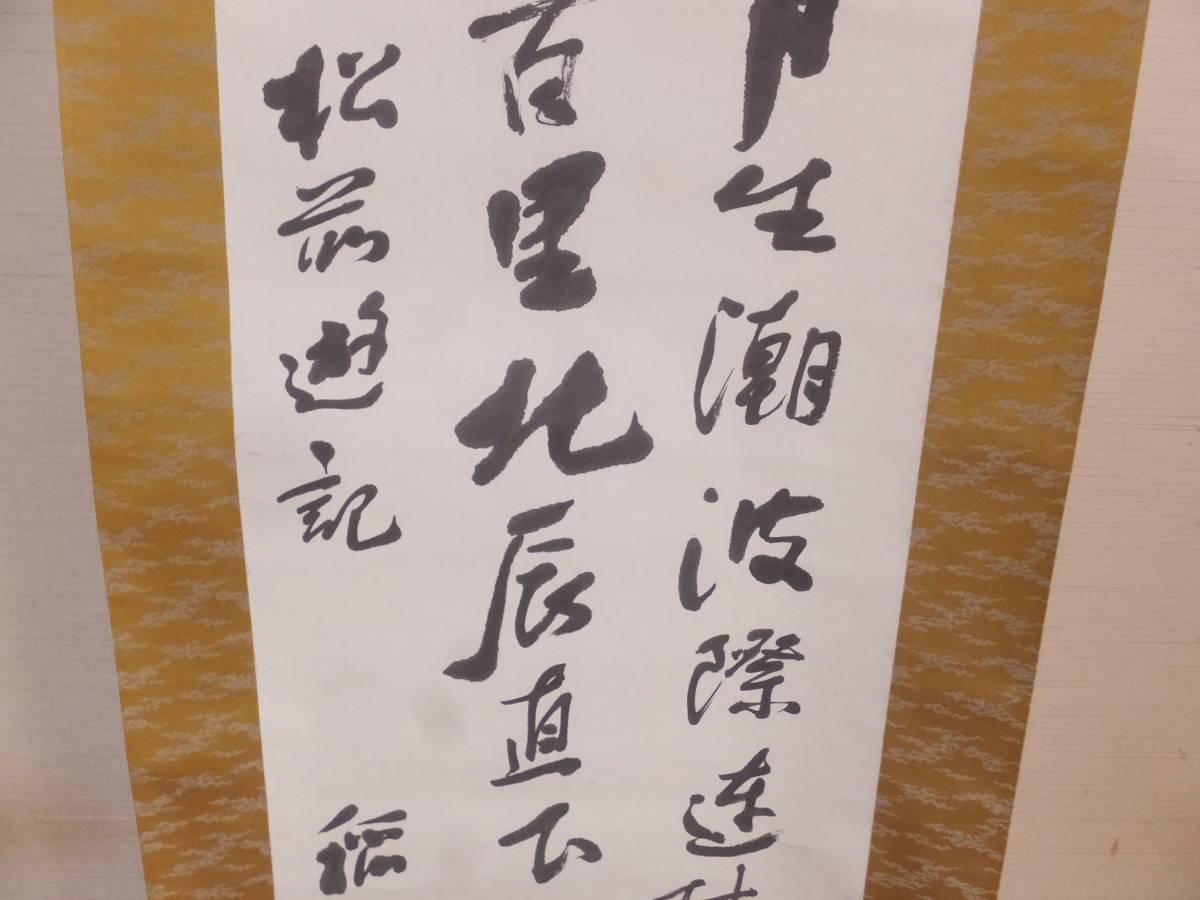 月生潮波際連
百里北辰直下
松前遊記